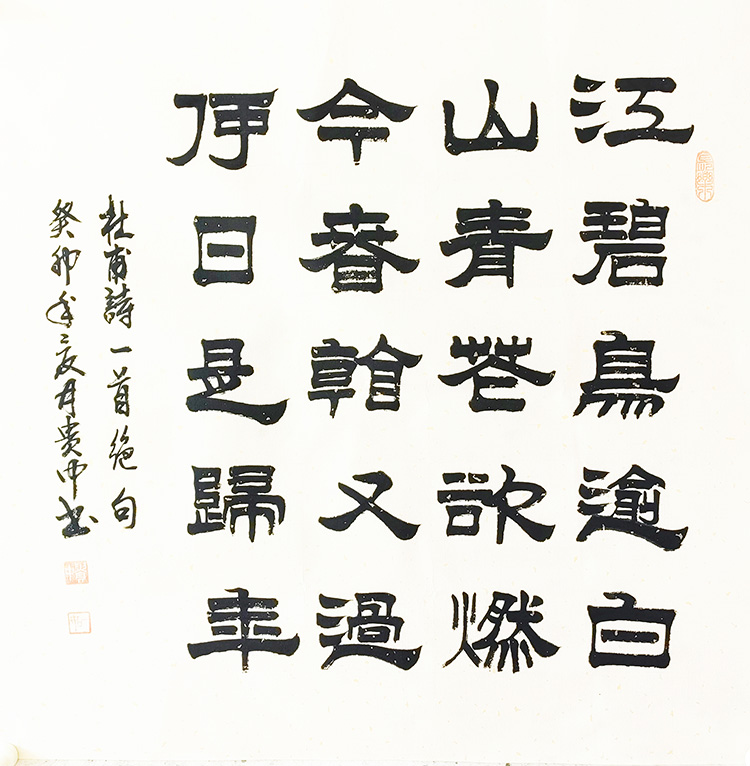 江碧鳥逾白
山青花欲燃
今春看又過
何日是歸年
杜甫詩一首絕句
癸卯年亥月贵中书